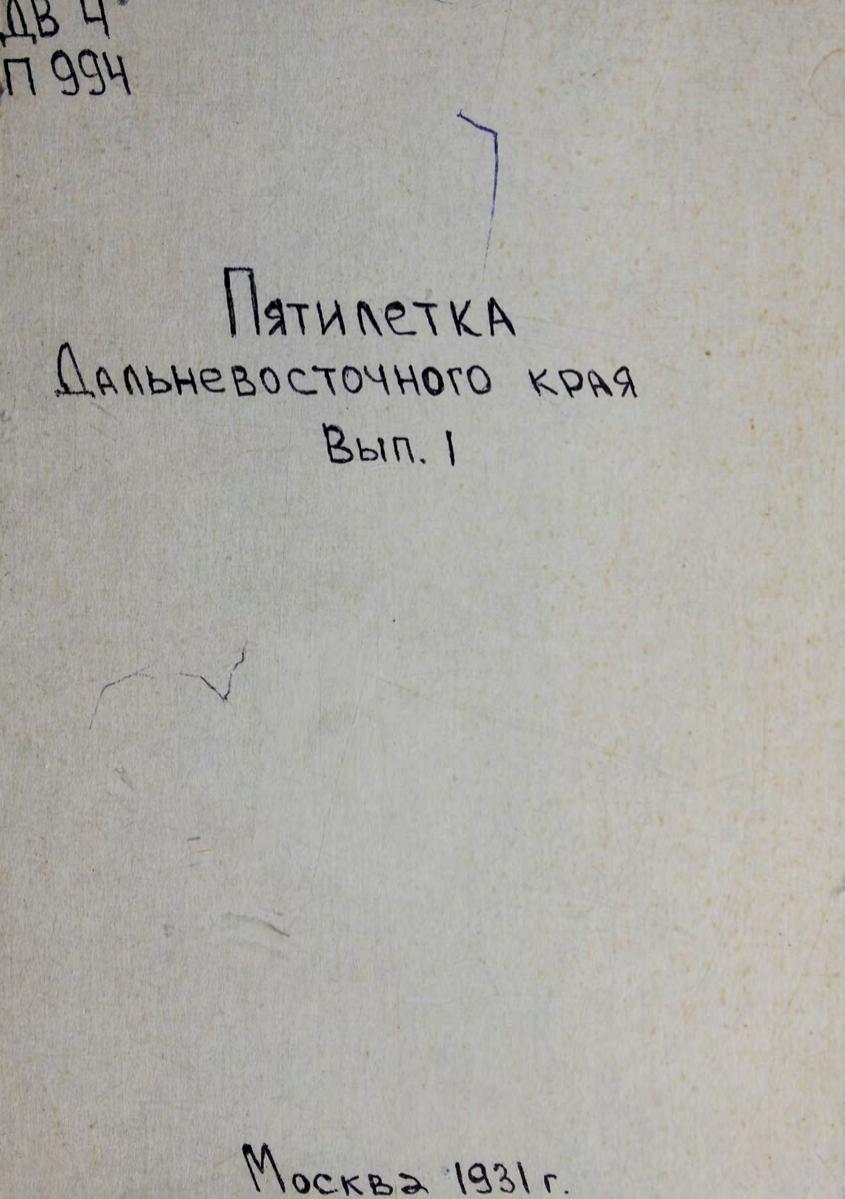 ДВ 4
П 994
Пятилетка
Дальневосточного края
Вып. 1
Москва 1931 г.